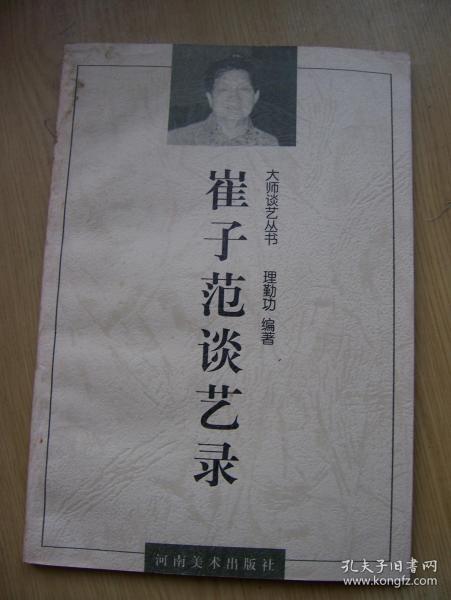 大师谈艺丛书
理勤功 编著
崔子范谈艺录
河南美术出版社
孔夫子旧书网
www.kongfz.com